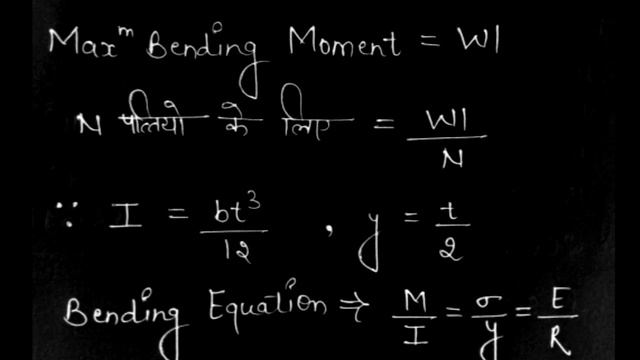 Maxᵐ Bending Moment = Wl
N पत्तियो के लिए = Wl/N
∵ I = bt³/12 , y = t/2
Bending Equation ⇒ M/I = σ/y = E/R